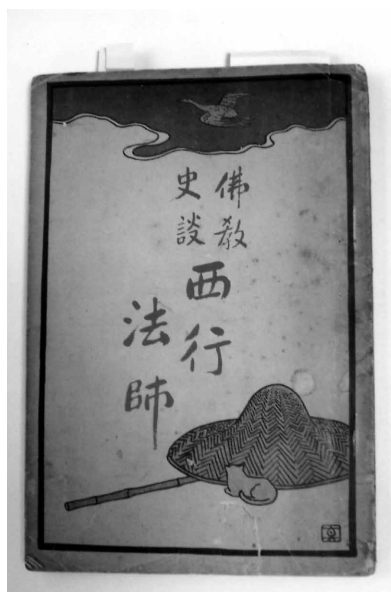 佛教
史談
西行
法師